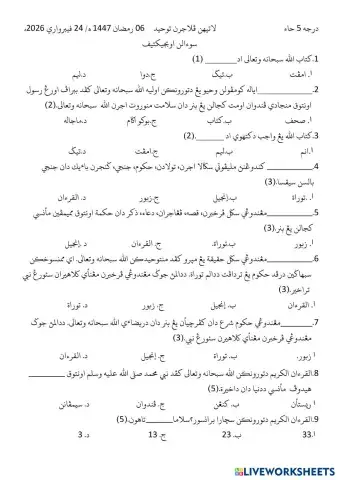 درجه 5 حاء
لاتيهن ڤلاجرن توحيد 06 رمضان 1447 ه/ 24 فيبرواري 2026،
سوءالن اوبجيكتيف
1.كتاب الله سبحانه وتعالى اد________ (1)
ا. امڤت ب.تيݢ ج.دوا د.ليم
2.________اياله كومڤولن وحيو يڠ دتورونكن اوليه الله سبحانه وتعالى كڤد ببراڤ اورڠ رسول
اونتوق منجادي ڤندوان اومت كجالن يڠ بنر دان سلامت منوروت اجرن الله سبحانه وتعالى.(2)
ا. صحف ب.كتاب ج.بوكو اݢام د.ماجاله
3.كتاب الله يڠ واجب دكتهوي اد________.(2)
ا.انم ب.ليم ج.امڤت د.تيݢ
4.________ كندوڠنڽ مليڤوتي سݢالا اجرن، تولادن، حكوم، جنجي، ݢنجرن باءيك دان جنجي
بالسن سيقسا.(3)
ا. توراة ب.إنجيل ج.زبور د. القرءان
5.________مڠندوڠي سݢل ڤرخبرن، قصه، ڤڠاجران، دعاء، ذكر دان حكمة اونتوق ممبيمبيڠ مأنسي
كجالن يڠ بنر.(3)
ا. زبور ب.توراة ج. القرءان د .إنجيل
6.________مڠندوڠي سݢل حقيقة يڠ مڽرو كڤد منتوحيدكن الله سبحانه وتعالى. اي ممنسوخكن
سبهاݢين درڤد حكوم يڠ تردافت ددالم توراة. ددالمڽ جوݢ مڠندوڠي ڤرخبرن مڠناءي كلاهيران سئورڠ نبي
تراخير.(3)
ا. القرءان ب. إنجيل ج. زبور د. توراة
7.________مڠندوڠي حكوم شرع دان كڤرچيأن يڠ بنر دان دريضاءي الله سبحانه وتعالى. ددالمڽ جوݢ
مڠندوڠي ڤرخبرن مڠناءي كلاهيرن سئورڠ نبي.(3)
ا زبور. ب. توراة ج. إنجيل د. القرءان
8.القرءان الكريم دتورونكن الله سبحانه وتعالى كڤد نبي محمد صلى الله عليه وسلم اونتوق ________
هيدوڤ مأنسي ددنيا دان داخيرة.(5)
ب. كتڠن ج. ڤندوان د. سيمڤانن
9.القرءان الكريم دتورونكن سچارا برانسور٢سلاما________تاهون.(5)
ا.33 ب. 23 ج. 13 د. 3
LIVEWORKSHEETS